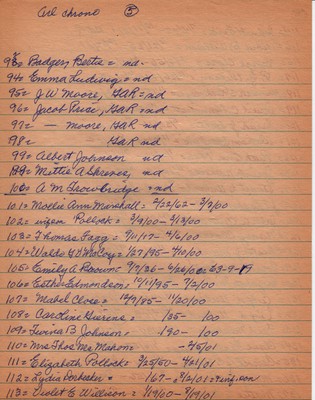 Col chrono ⑤
93= Badger, Bertie= nd.
94= Emma Ludwig= nd
95= J.W. Moore, GAR= nd
96= Jacob Price, GAR= nd
97= — Moore, GAR nd
98= GAR nd
99= Albert Johnson nd
= Mettie A Shreves, nd
100= A M Trowbridge = nd
101= Mollie Ann Marshall= 4/22/62 - 3/2/00
102= Pollock= 3/9/00 - 3/13/00
103= Thomas Fagg= 9/11/17 - 4/6/00
104= Waldo 1/27/95 - 4/10/00
105= Emily A Brown=
106= Esther Edmondson= 10/11/95 - 7/2/00
107= Mabel Close= 12/9/85 - 11/20/00
108= Caroline 135 - 100
109= Lovina B Johnson= 190 - 100
110= Mrs Thos McMahon= - 2/5/01
111= Elizabeth Pollock= 3/25/50 - 4/21/01
112= Lydia 167 -
113= Violet E Willison=